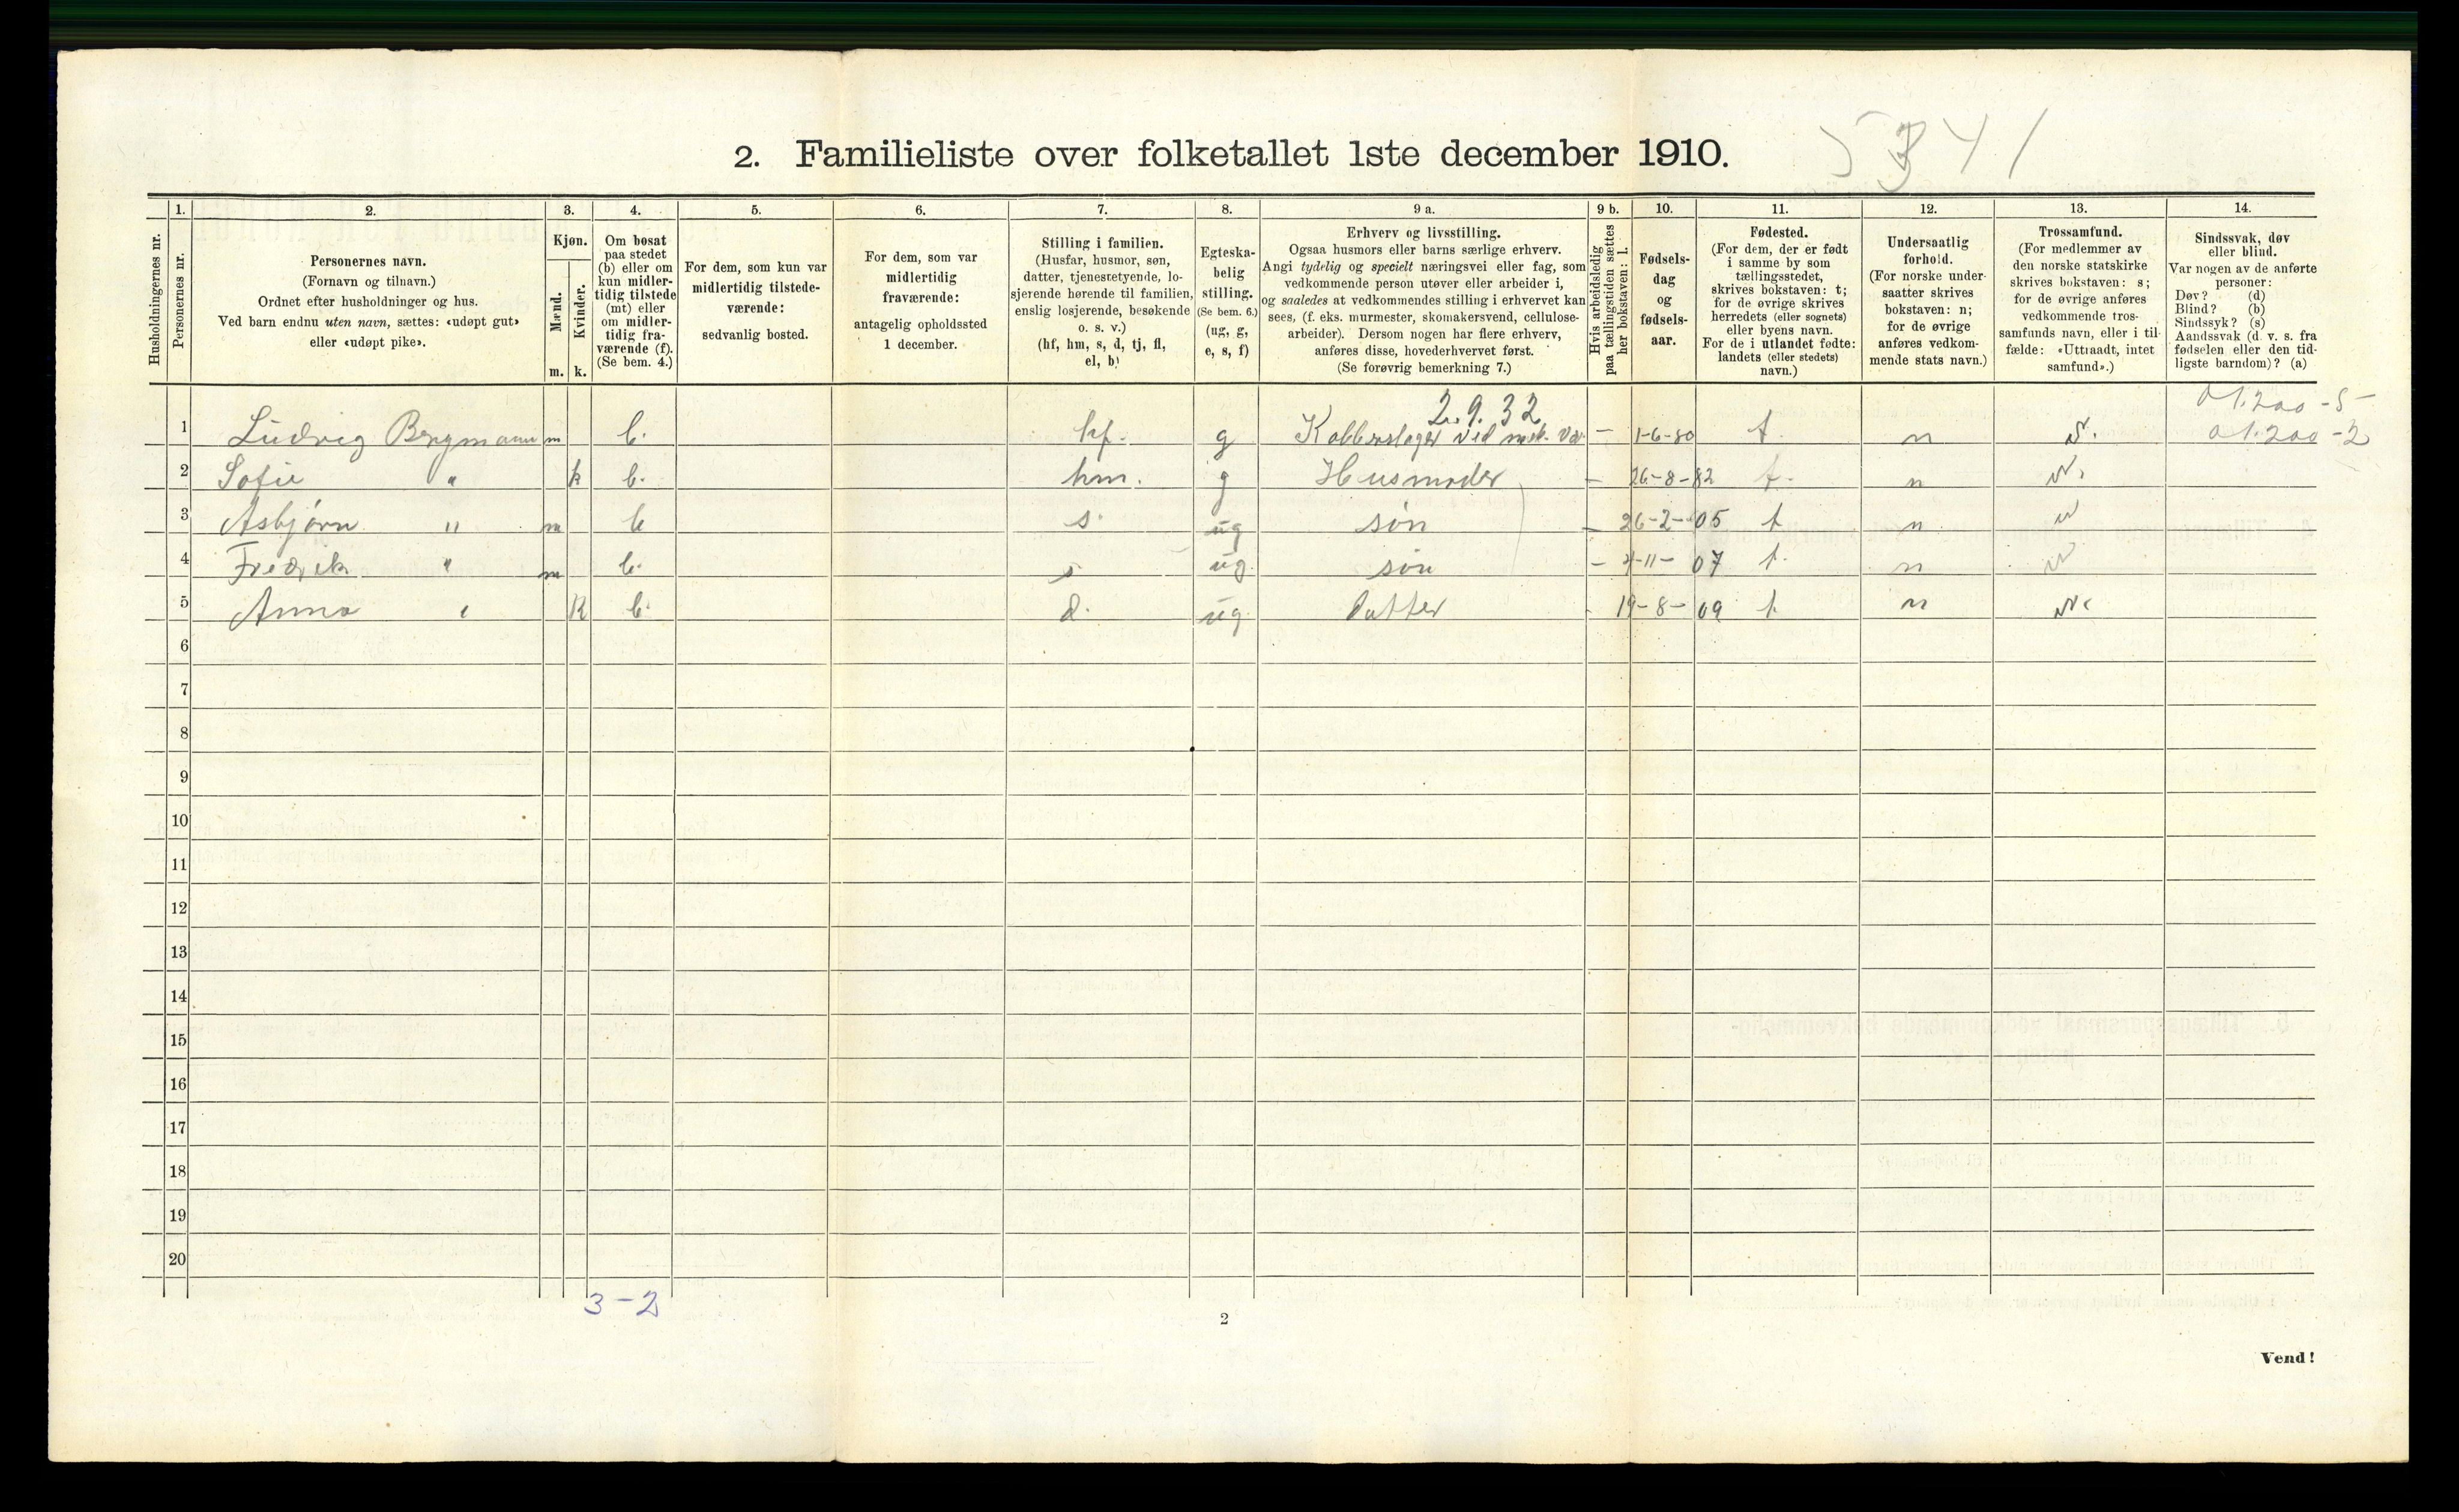 5341
2. Familieliste over folketallet 1ste december 1910.
Husholdningernes nr.
1. Personernes nr.
2. Personernes navn. (Fornavn og tilnavn.) Ordnet efter husholdninger og hus. Ved barn endnu uten navn, sættes: «udøpt gut» eller «udøpt pike».
3. Kjøn. Mænd. m. Kvinder. k.
4. Om bosat paa stedet (b) eller om kun midlertidig tilstede (mt) eller om midlertidig fraværende (f). (Se bem. 4.)
5. For dem, som kun var midlertidig tilstedeværende: sedvanlig bosted.
6. For dem, som var midlertidig fraværende: antagelig opholdssted 1 december.
7. Stilling i familien. (Husfar, husmor, søn, datter, tjenestetyende, losjerende hørende til familien, enslig losjerende, besøkende o. s. v.) (hf, hm, s, d, tj, fl, el, b)
8. Egteskabelig stilling. (Se bem. 6.) (ug, g, e, s, f)
9 a. Erhverv og livsstilling. Ogsaa husmors eller barns særlige erhverv. Angi tydelig og specielt næringsvei eller fag, som vedkommende person utøver eller arbeider i, og saaledes at vedkommendes stilling i erhvervet kan sees, (f. eks. murmester, skomakersvend, cellulosearbeider). Dersom nogen har flere erhverv, anføres disse, hovederhvervet først. (Se forøvrig bemerkning 7.)
9 b. Hvis arbeidsledig paa tællingstiden sættes her bokstaven: l.
10. Fødselsdag og fødselsaar.
11. Fødested. (For dem, der er født i samme by som tællingsstedet, skrives bokstaven: t; for de øvrige skrives herredets (eller sognets) eller byens navn. For de i utlandet fødte: landets (eller stedets) navn.)
12. Undersaatlig forhold. (For norske undersaatter skrives bokstaven: n; for de øvrige anføres vedkommende stats navn.)
13. Trossamfund. (For medlemmer av den norske statskirke skrives bokstaven: s; for de øvrige anføres vedkommende trossamfunds navn, eller i tilfælde: «Uttraadt, intet samfund».)
14. Sindssvak, døv eller blind. Var nogen av de anførte personer: Døv? (d) Blind? (b) Sindssyk? (s) Aandssvak (d. v. s. fra fødselen eller den tidligste barndom)? (a)
2.9.32 01.200-5-
1 Ludvig Bergmann m b. hf. g Kobberslager ved mek. Væ. - 1-6-80 t. n s. 01.200-2
2 Sofie " k b. hm. g Husmoder - 26-8-82 t. n
3 Asbjørn " m b s. ug søn - 26-2-05 t n
4 Fredrik " m b. s ug. søn - 4-11-07 t. n
5 Anna " k b. d. ug. datter - 19-8-09 t. n
6
7
8
9
10
11
12
13
14
15
16
17
18
19
20
3-2
2
Vend!